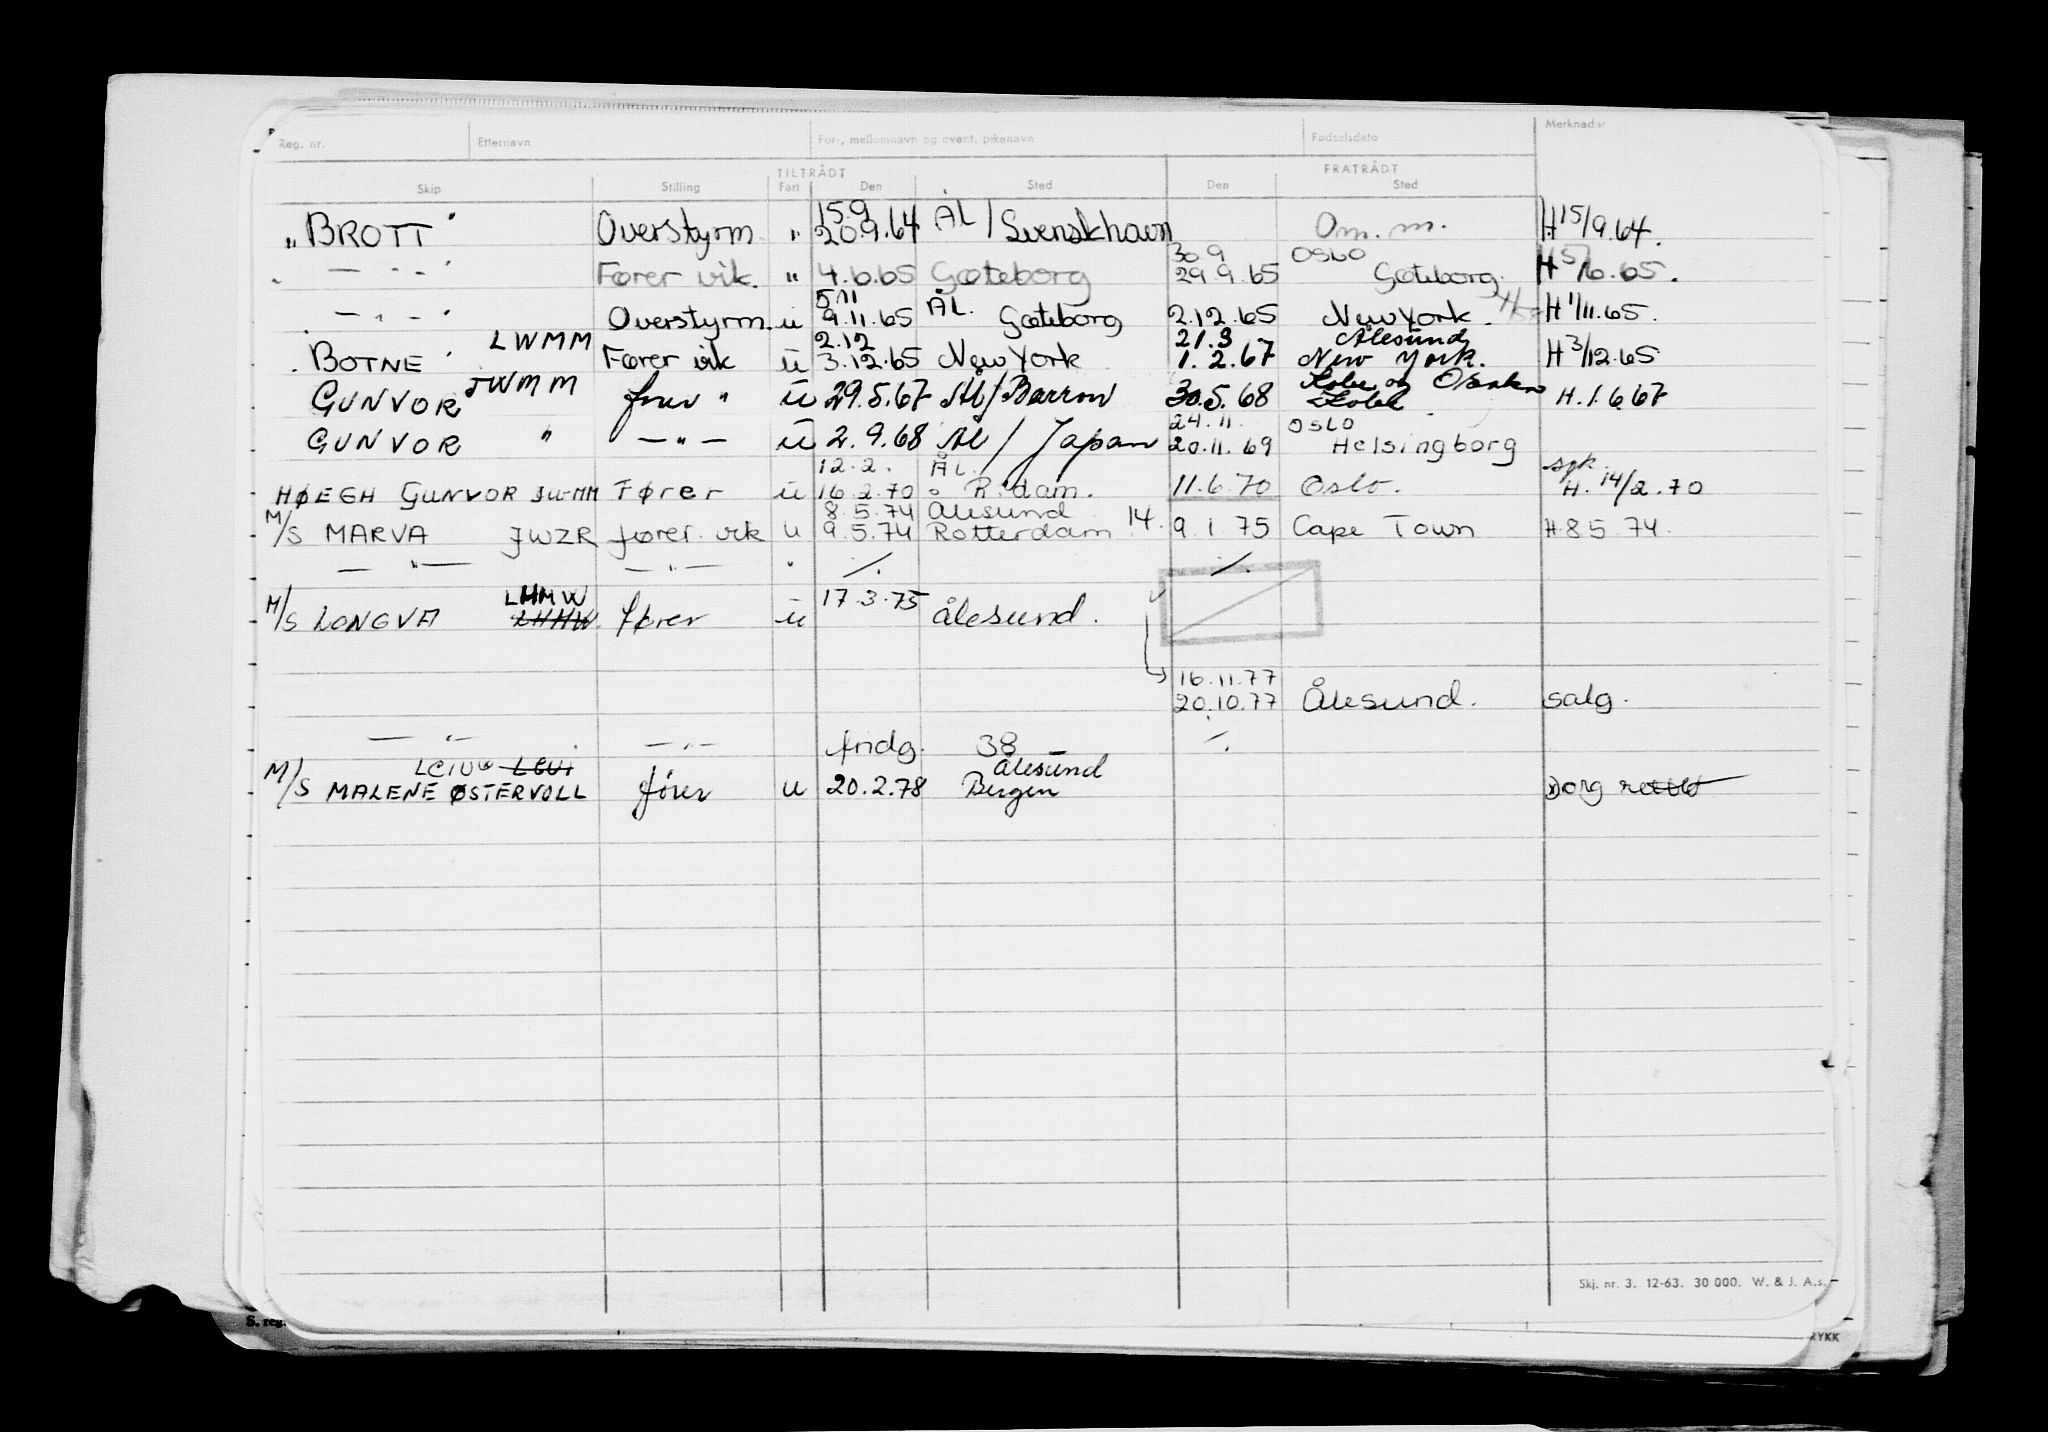 Reg. nr. Etternavn For-, mellomnavn og event. pikenavn Fødselsdato Merknader
TILTRÅDT FRATRÅDT
Skip Stilling Fart Den Sted Den Sted
15.9 ÅL
"BROTT" Overstyrm. " 20.9.64 / Svenskhavn Om. m. H15/9.64.
30 9 OSLO
" — " — " Fører vik. " 4.6.65 Gøteborg 29.9.65 Gøteborg. H 5/6.65.
5/11 ÅL.
" — " — " Overstyrm. u 9.11.65 Gøteborg 2.12.65 New York. H 1/11.65.
LWMM 2.12 21.3 Ålesund
"BOTNE" Fører vik u 3.12.65 New York 1.2.67 New York. H 3/12.65
JWMM Kobe og Osaka
GUNVOR fører " u 29.5.67 Ål/Barrow 30.5.68 Kobe H.1.6.67
24.11. OSLO
GUNVOR " — " — u 2.9.68 Ål / Japan 20.11.69 Helsingborg
12.2. ÅL.
HØEGH GUNVOR JWMM Fører u 16.2.70 R.dam. 11.6.70 Oslo. H. 14/2.70
8.5.74 Ålesund 14.
M/S MARVA JWZR fører vik u 9.5.74 Rotterdam 9.1.75 Cape Town H 8 5.74.
— " — — " — " ⁄. ⁄.
LHMW 17.3.75
M/S LONGVA LHHW. fører u Ålesund.
16.11.77
20.10.77 Ålesund. salg.
— " — — " — fndg. 38 ⁄.
Ålesund
M/S MALENE ØSTERVOLL fører u 20.2.78 Bergen
Skj. nr. 3. 12-63. 30 000. W. & J. A.s.
S. reg.
RYKK